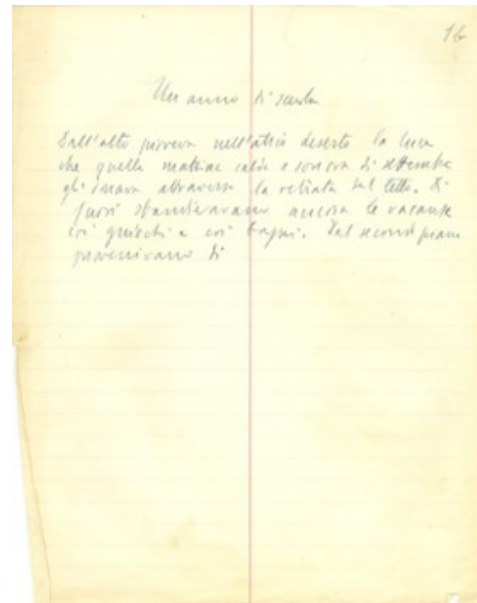 16
Un anno di scuola
Dall'alto pioveva nell'atrio deserto la luce
che quella mattina calda e sonora di settembre
gli inviava attraverso la vetrata sul tetto. Di
fuori sbandieravano ancora le vacanze
coi giuochi e coi bagni. Dal secondo piano
provenivano di